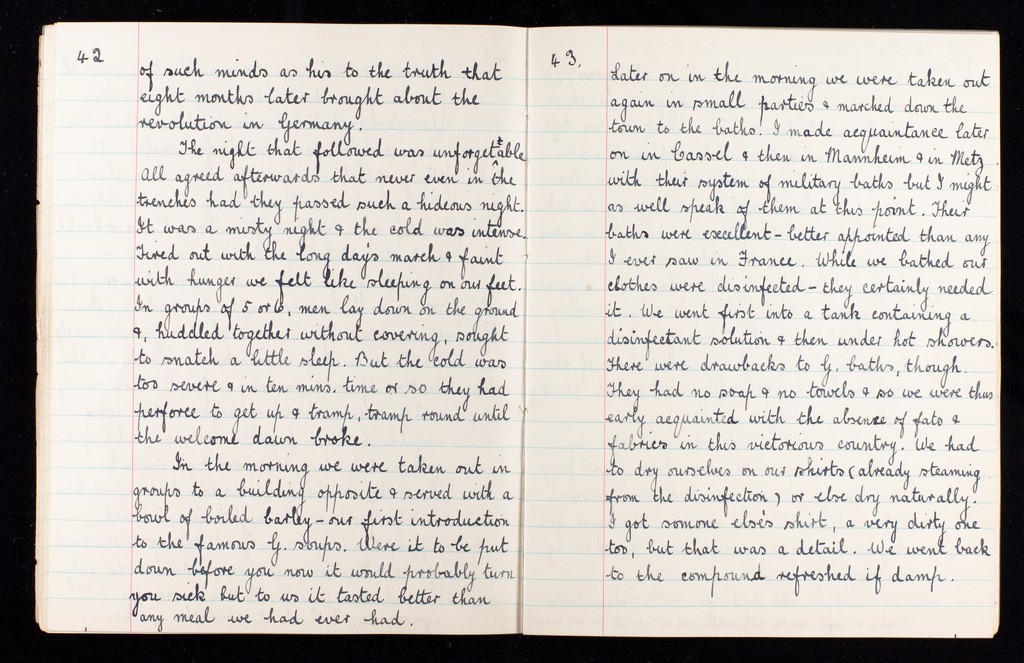 42
of such minds as his to the truth that
eight months later brought about the
revolution in Germany.
The night that followed was unforgettable
All agreed afterwards that never even in the
trenches had they passed such a hideous night.
It was a misty night & the cold was intense.
Tired out with the long day's march & faint
with hunger we felt like sleeping on our feet.
In groups of 5 or 6, men lay down on the ground
&, huddled together without covering, sought
to snatch a little sleep. But the cold was
too severe & in ten mins. time or so they had
perforce to get up & tramp, tramp round until
the welcome dawn broke.
In the morning we were taken out in
groups to a building opposite & served with a
bowl of boiled barley - our first introduction
to the famous G. soups. Were it to be put
down before you now it would probably turn
you sick but to us it tasted better than
any meal we had ever had.
43.
Later on in the morning we were taken out
again in small parties & marched down the
town to the baths. I made acquaintance later
on in Cassel & then in Mannheim & in Metz
with their system of military baths but I might
as well speak of them at this point. Their
baths were excellent - better appointed than any
I ever saw in France. While we bathed our
clothes were disinfected - they certainly needed
it. We went first into a tank containing a
disinfectant solution & then under hot showers.
There were drawbacks to G. baths, though.
They had no soap & no towels & so we were thus
early acquainted with the absence of fats &
fabrics in this victorious country. We had
to dry ourselves on our shirts (already steaming
from the disinfection) or else dry naturally.
I got somone else's shirt, a very dirty one
too, but that was a detail. We went back
to the compound refreshed if damp.